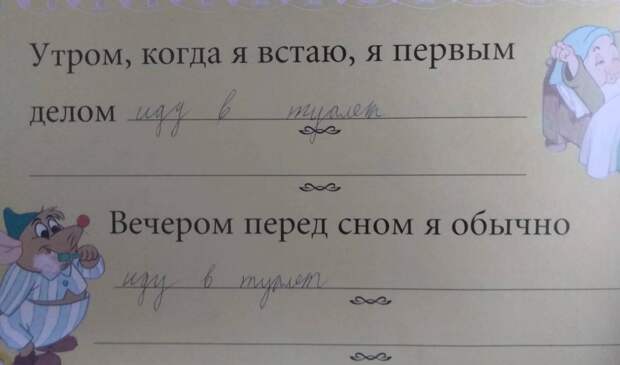 Утром, когда я встаю, я первым
делом иду в туалет
Вечером перед сном я обычно
иду в туалет